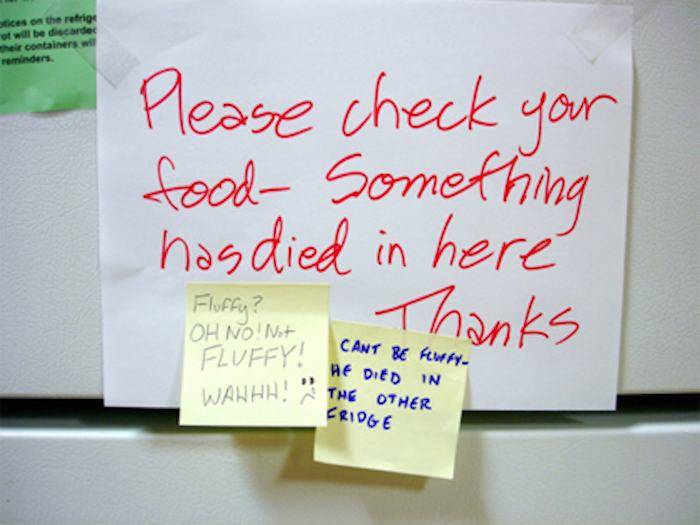 otices on the refrige
ot will be discarded
their containers will
reminders.
Please check your
food- Something
has died in here
Thanks
Fluffy?
OH NO! Not
FLUFFY!
WAHHH!
CANT BE FLUFFY-
HE DIED IN
THE OTHER
FRIDGE